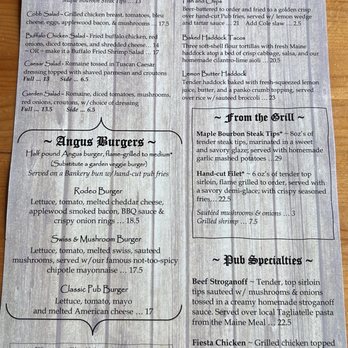 Maple Bourbon Steak Tips ... 13
Cobb Salad ~ Grilled chicken breast, tomatoes, bleu
cheese, eggs, applewood bacon, & mushrooms ... 17.5
Buffalo Chicken Salad ~ Fried buffalo chicken, red
onions, diced tomatoes, and shredded cheese ... 14
~ OR ~ make it a Buffalo Fried Shrimp Salad ... 17
Caesar Salad ~ Romaine tossed in Tuscan Caesar
dressing topped with shaved parmesan and croutons
Full ... 13.5 Side ... 6.5
Garden Salad ~ Romaine, diced tomatoes, mushrooms,
red onions, croutons, w/ choice of dressing
Full ... Side ... 6.5
~ Angus Burgers ~
Half pound Angus burger, flame-grilled to medium*
(Substitute a garden veggie burger)
Served on a Bankery bun w/ hand-cut pub fries
Rodeo Burger
Lettuce, tomato, melted cheddar cheese,
applewood smoked bacon, BBQ sauce &
crispy onion rings ... 18.5
Swiss & Mushroom Burger
Lettuce, tomato, melted swiss, sauteed
mushrooms, served w/our famous not-too-spicy
chipotle mayonnaise ... 17.5
Classic Pub Burger
Lettuce, tomato, mayo
and melted American cheese ... 17
Fish and Chips
Beer-battered to order and fried to a golden crisp
over hand-cut Pub fries, served w/ lemon wedge
and tartar sauce ... 21 Add Cole slaw ... 2.5
Baked Haddock Tacos
Three soft-shell flour tortillas with fresh Maine
haddock atop a bed of crisp cabbage, salsa, and our
homemade cilantro-lime aioli .. 20.5
Lemon Butter Haddock
Tender haddock baked with fresh-squeezed lemon
juice, butter, and a panko crumb topping, served
over rice w/ sauteed broccoli ... 23
~ From the Grill ~
Maple Bourbon Steak Tips* ~ 8oz's of
tender steak tips, marinated in a sweet
and savory glaze; served with homemade
garlic mashed potatoes ... 29
Hand-cut Filet* ~ 6 oz's of tender top
sirloin, flame grilled to order, served with
a savory demi-glaze; with crispy seasoned
fries....22.5
Sauteed mushrooms & onions ... 3
Grilled shrimp ... 7.5
~ Pub Specialties ~
Beef Stroganoff ~ Tender, top sirloin
tips sauteed w/ mushrooms & onions
tossed in a creamy homemade stroganoff
sauce. Served over local Tagliatelle pasta
from the Maine Meal ... 22.5
Fiesta Chicken ~ Grilled chicken topped